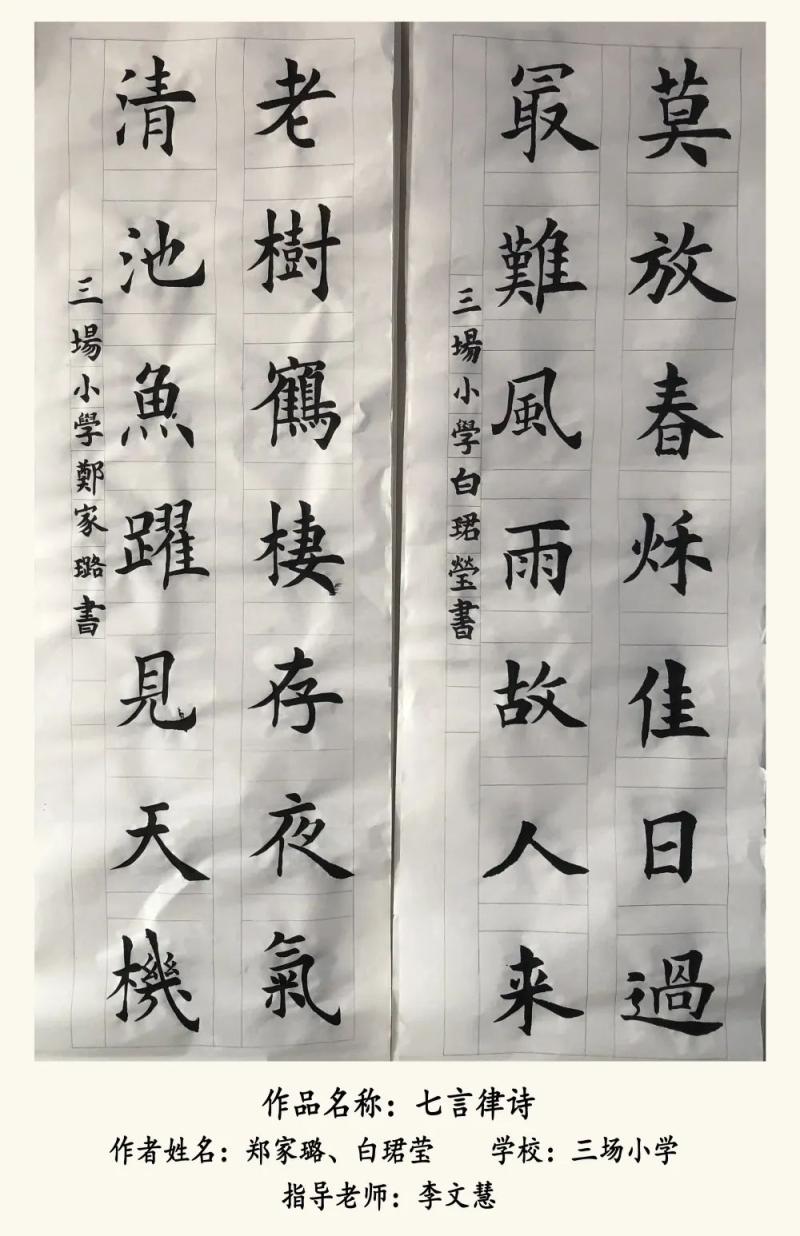 莫放春秌佳日過
最難風雨故人来
三場小學白珺瑩書
老樹鶴棲存夜氣
清池魚躍見天機
三場小學鄭家璐書
作品名称：七言律诗
作者姓名：郑家璐、白珺莹 学校：三场小学
指导老师：李文慧